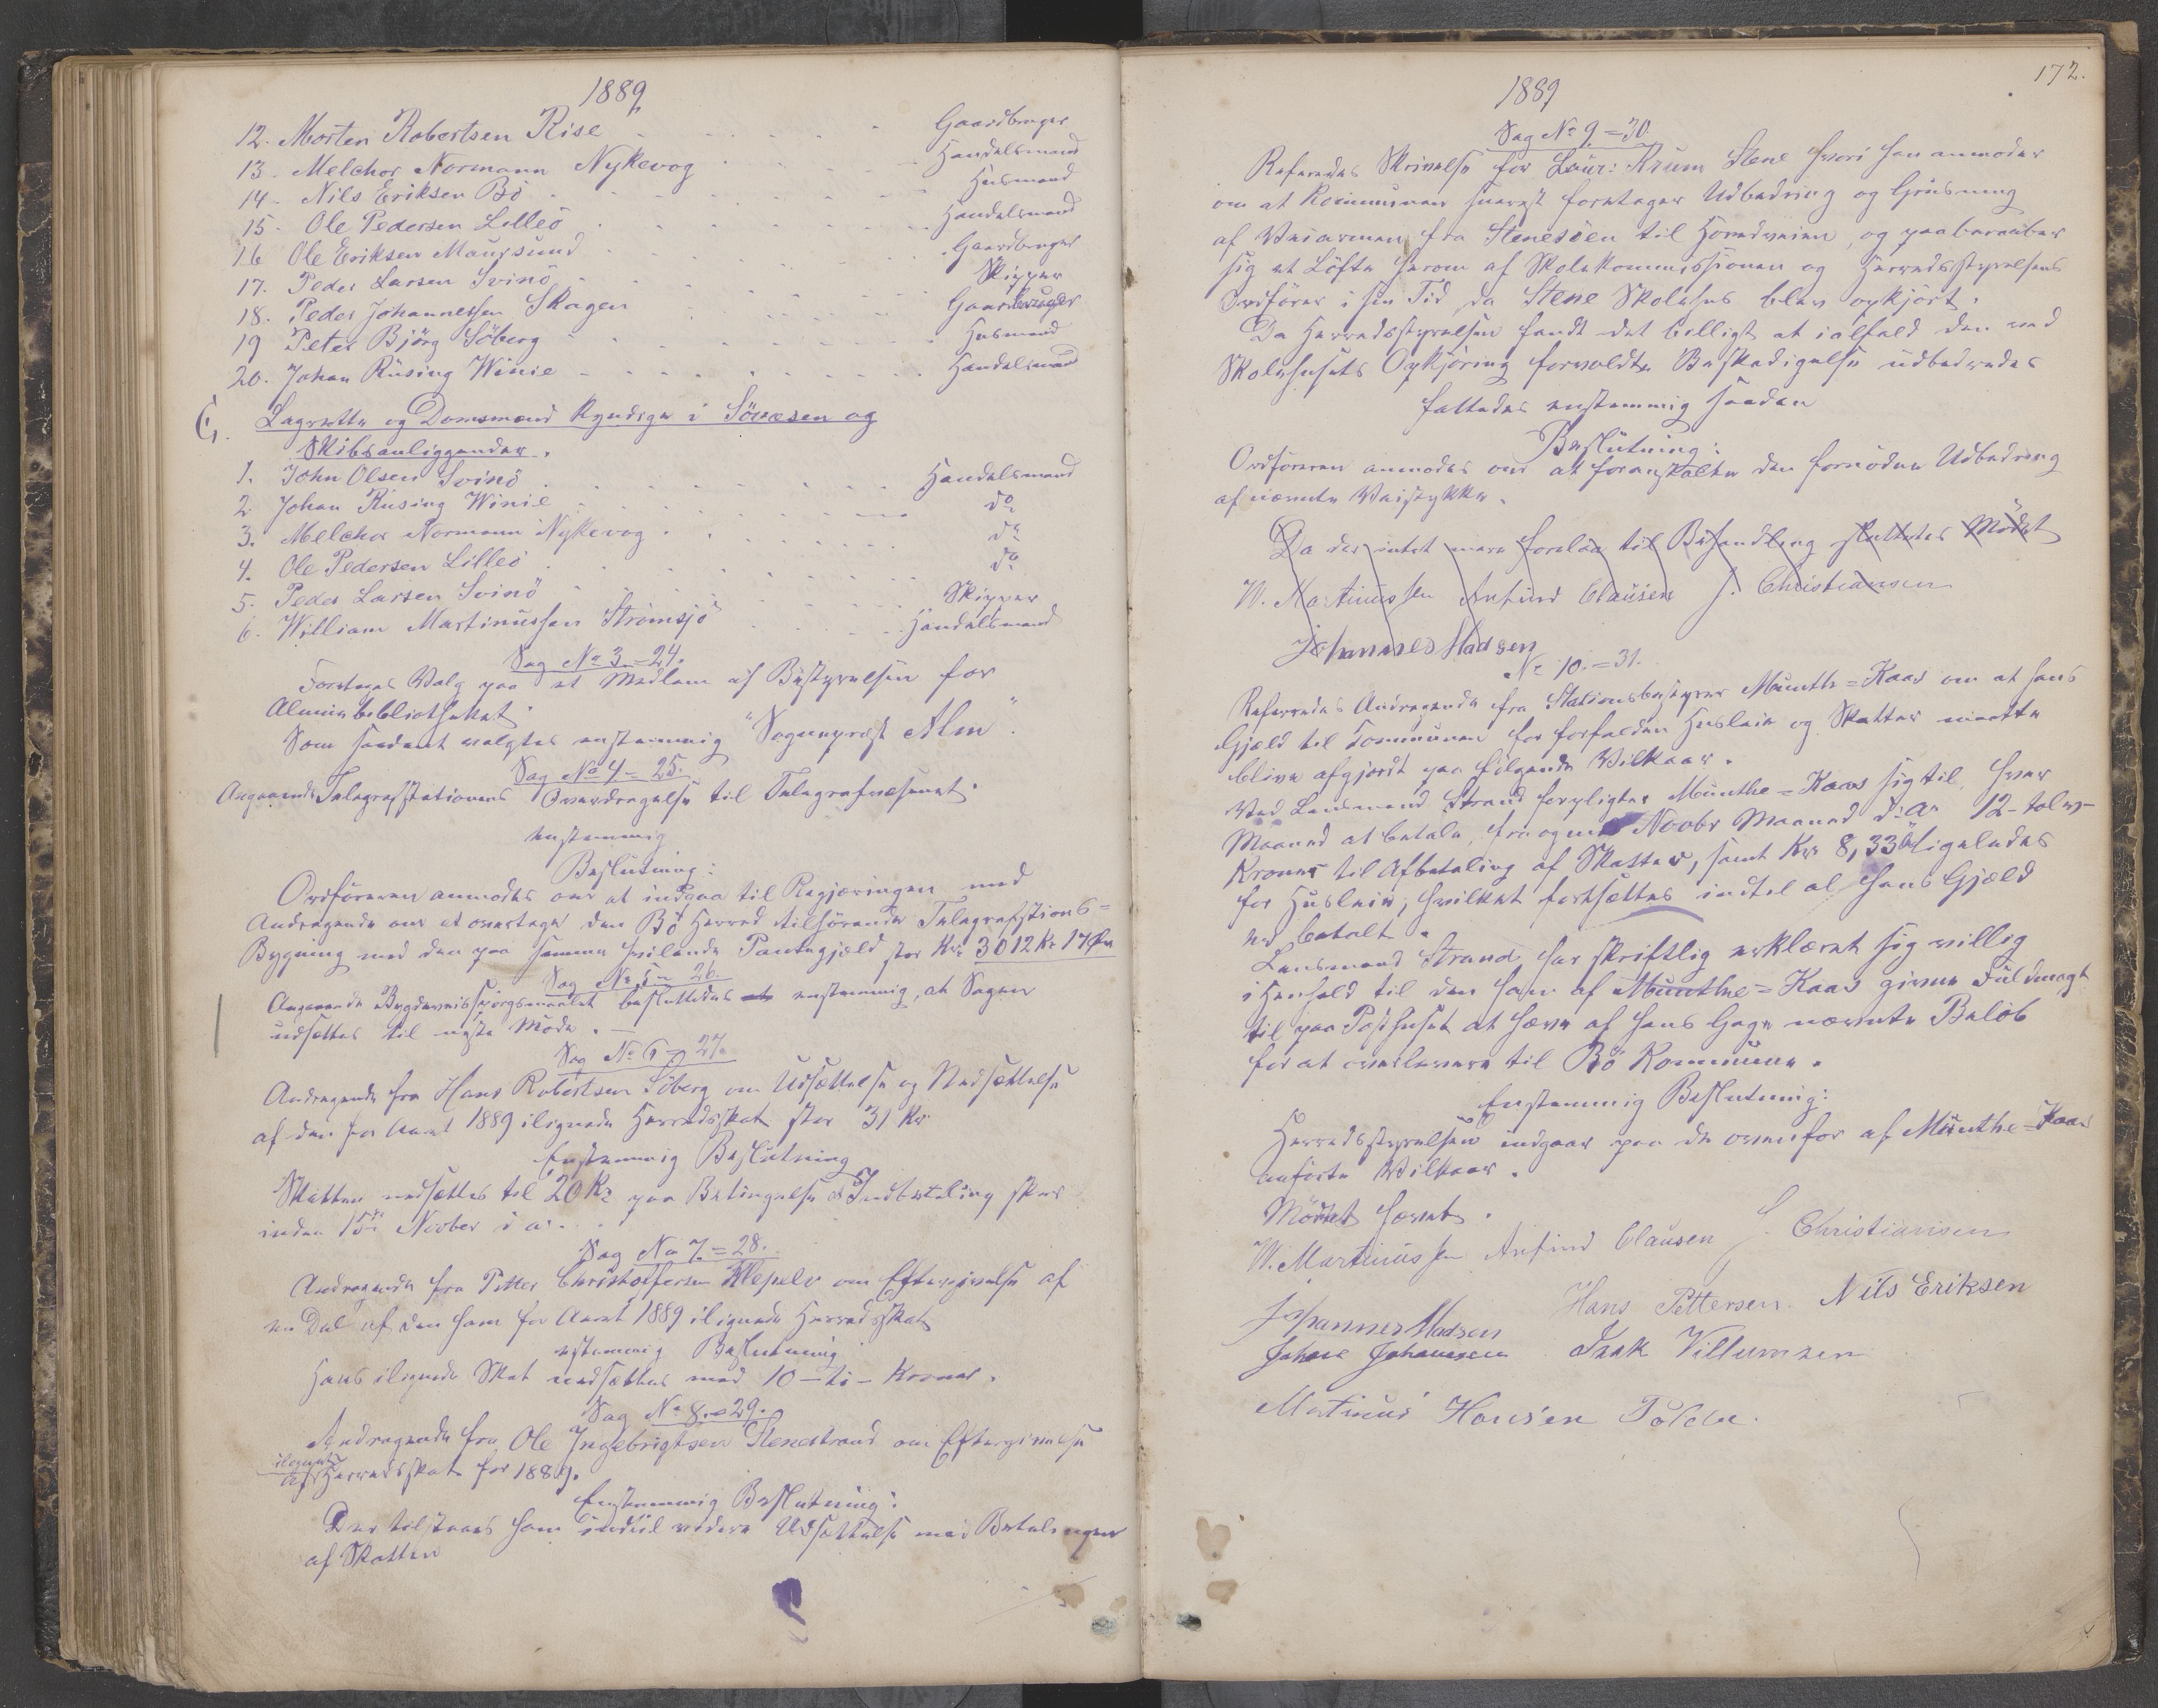 1889
12. Morten Robertsen Rise - - - - - - Gaardbruger
13. Melchor Normann Nykevog - - - - Handelsmand
14 - Nils Eriksen Bö - - - - - - - Husmand
15 - Ole Pedersen Lilleö - - - - - - Handelsmand
16 Ole Eriksen Maursund - - - - - - Gaardbruger
17. Peder Larsen Svinö - - - - - - - Skipper
18. Peder Johannessen Skagen - - - - Gaardbruger
19 Peter Björg Söberg - - - - - - - Husmand
20. Johan Rüsing Winie - - - - - - - Handelsmand
G. Lagrette og Domsmænd kyndige i Sövæsen og
Skibsanliggender.
1. John Olsen Svinö - - - - - - - Handelsmand
2 Johan Rüsing Winie - - - - - - do
3. Melchor Normann Nykevog - - - - - do
4. Ole Pedersen Lilleö - - - - - - - do
5. Peder Larsen Svinö - - - - - - - Skipper
6. William Martinussen Strömsjö - - - - Handelsmand
Sag No 3 = 24.
Foretages Valg paa et Medlem af Bestyrelsen for
Almuebibliotheket.
Som saadant valgtes enstemmig "Sogneprest Alm".
Sag No 4 = 25.
Angaaende Telegrafstationens Overdragelse til Telegrafvæsenet.
Enstemmig
Beslutning:
Ordföreren anmodes om at indgaa til Regjeringen med
Andragende om at overtage den Bö Herred tilhörende Telegrafstions=
Bygning med den paa samme hvilende Pantegjæld stor Kr. 3012 Kr 17 Öre
Sag No 5 = 26.
Angaaende Bygdeveisspörgsmaalet besluttedes enstemmig, at Sagen
udsættes til næste Möde. -
Sag No 6 = 27.
Andragende fra Hans Robertsen Söberg om Udsættelse og Nedsættelse
af den for Aaret 1889 ilignede Herredsskat stor 31 Kr
Enstemmig Beslutning
Skatten nedsættes til 20 Kr paa Betingelse at Indbetaling sker
inden 15de Novber i a.
Sag No 7 = 28.
Andragende fra Petter Christoffersen Klepelv om Eftergivelse af
en Del af den ham for Aaret 1889 ilignede Herredsskat
enstemmig Beslutning
Hans ilignede Skat nedsættes med 10 - ti - Kroner.
Sag No 8 = 29.
Andragende fra Ole Ingebrigtsen Stenestrand om Eftergivelse
ilignet
af Herredsskat for 1889.
Enstemmig Beslutning:
Der tilstaaes ham indtil videre Udsættelse med Betalingen
af Skatten
172.
1889
Sag No 9 = 30.
Refereredes Skrivelse fra Laur: Krum Stene hvori han anmoder
om at Kommunen snarest foretager Udbedring og Grusning
af Veiarmen fra Stenesöen til Hovedveien, og paaberaaber
sig et Löfte herom af Skolekommissionen og Herredsstyrelsens
Ordförer i sin Tid, da Stene Skolehus blev opkjört.
Da Herredsstyrelsen fandt det billigt at ialfald den ved
Skolehusets Opkjöring forvoldte Beskadigelse udbedredes
fattedes enstemmig saadan
Beslutning:
Ordföreren anmodes om at foranstalte den fornödne Udbedring
af nævnte Veistykke.
Da der intet mere forelaa til Behandling sluttedes Mödet
W. Martinussen Arfind Clausen J. Christiansen
Johannes Madsen
No 10. = 31.
Refereredes Andragende fra Stationsbestyrer Munthe=Kaas om at hans
Gjæld til Kommunen for forfalden Husleie og Skatter maatte
blive afgjordt paa fölgende Vilkaar.
Ved Lensmand Strand forpligter Munthe=Kaas sig til, hver
Maaned at betale, fra og med Novbr Maaned d. a. 12 - tolv -
Kroner til Afbetaling af Skatter, samt Kr. 8,33 ligeledes
for Husleie, hvilket fortsættes indtil al hans Gjæld
er betalt.
Lensmand Strand har skriftlig erklæret sig villig
i Henhold til den ham af Munthe=Kaas givne Fuldmagt
til paa Posthuset at hæve af hans Gage nævnte Belöb
for at overlevere til Bö Kommune.
Enstemmig Beslutning:
Herredsstyrelsen indgaar paa de ovenfor af Munthe=Kaas
anförte Vilkaar.
Mödet hævet.
W. Martinussen Arfind Clausen J. Christiansen
Johannes Madsen Hans Pettersen. Nils Eriksen
Johan Johansen Isak Villumsen
Martinus Hansen